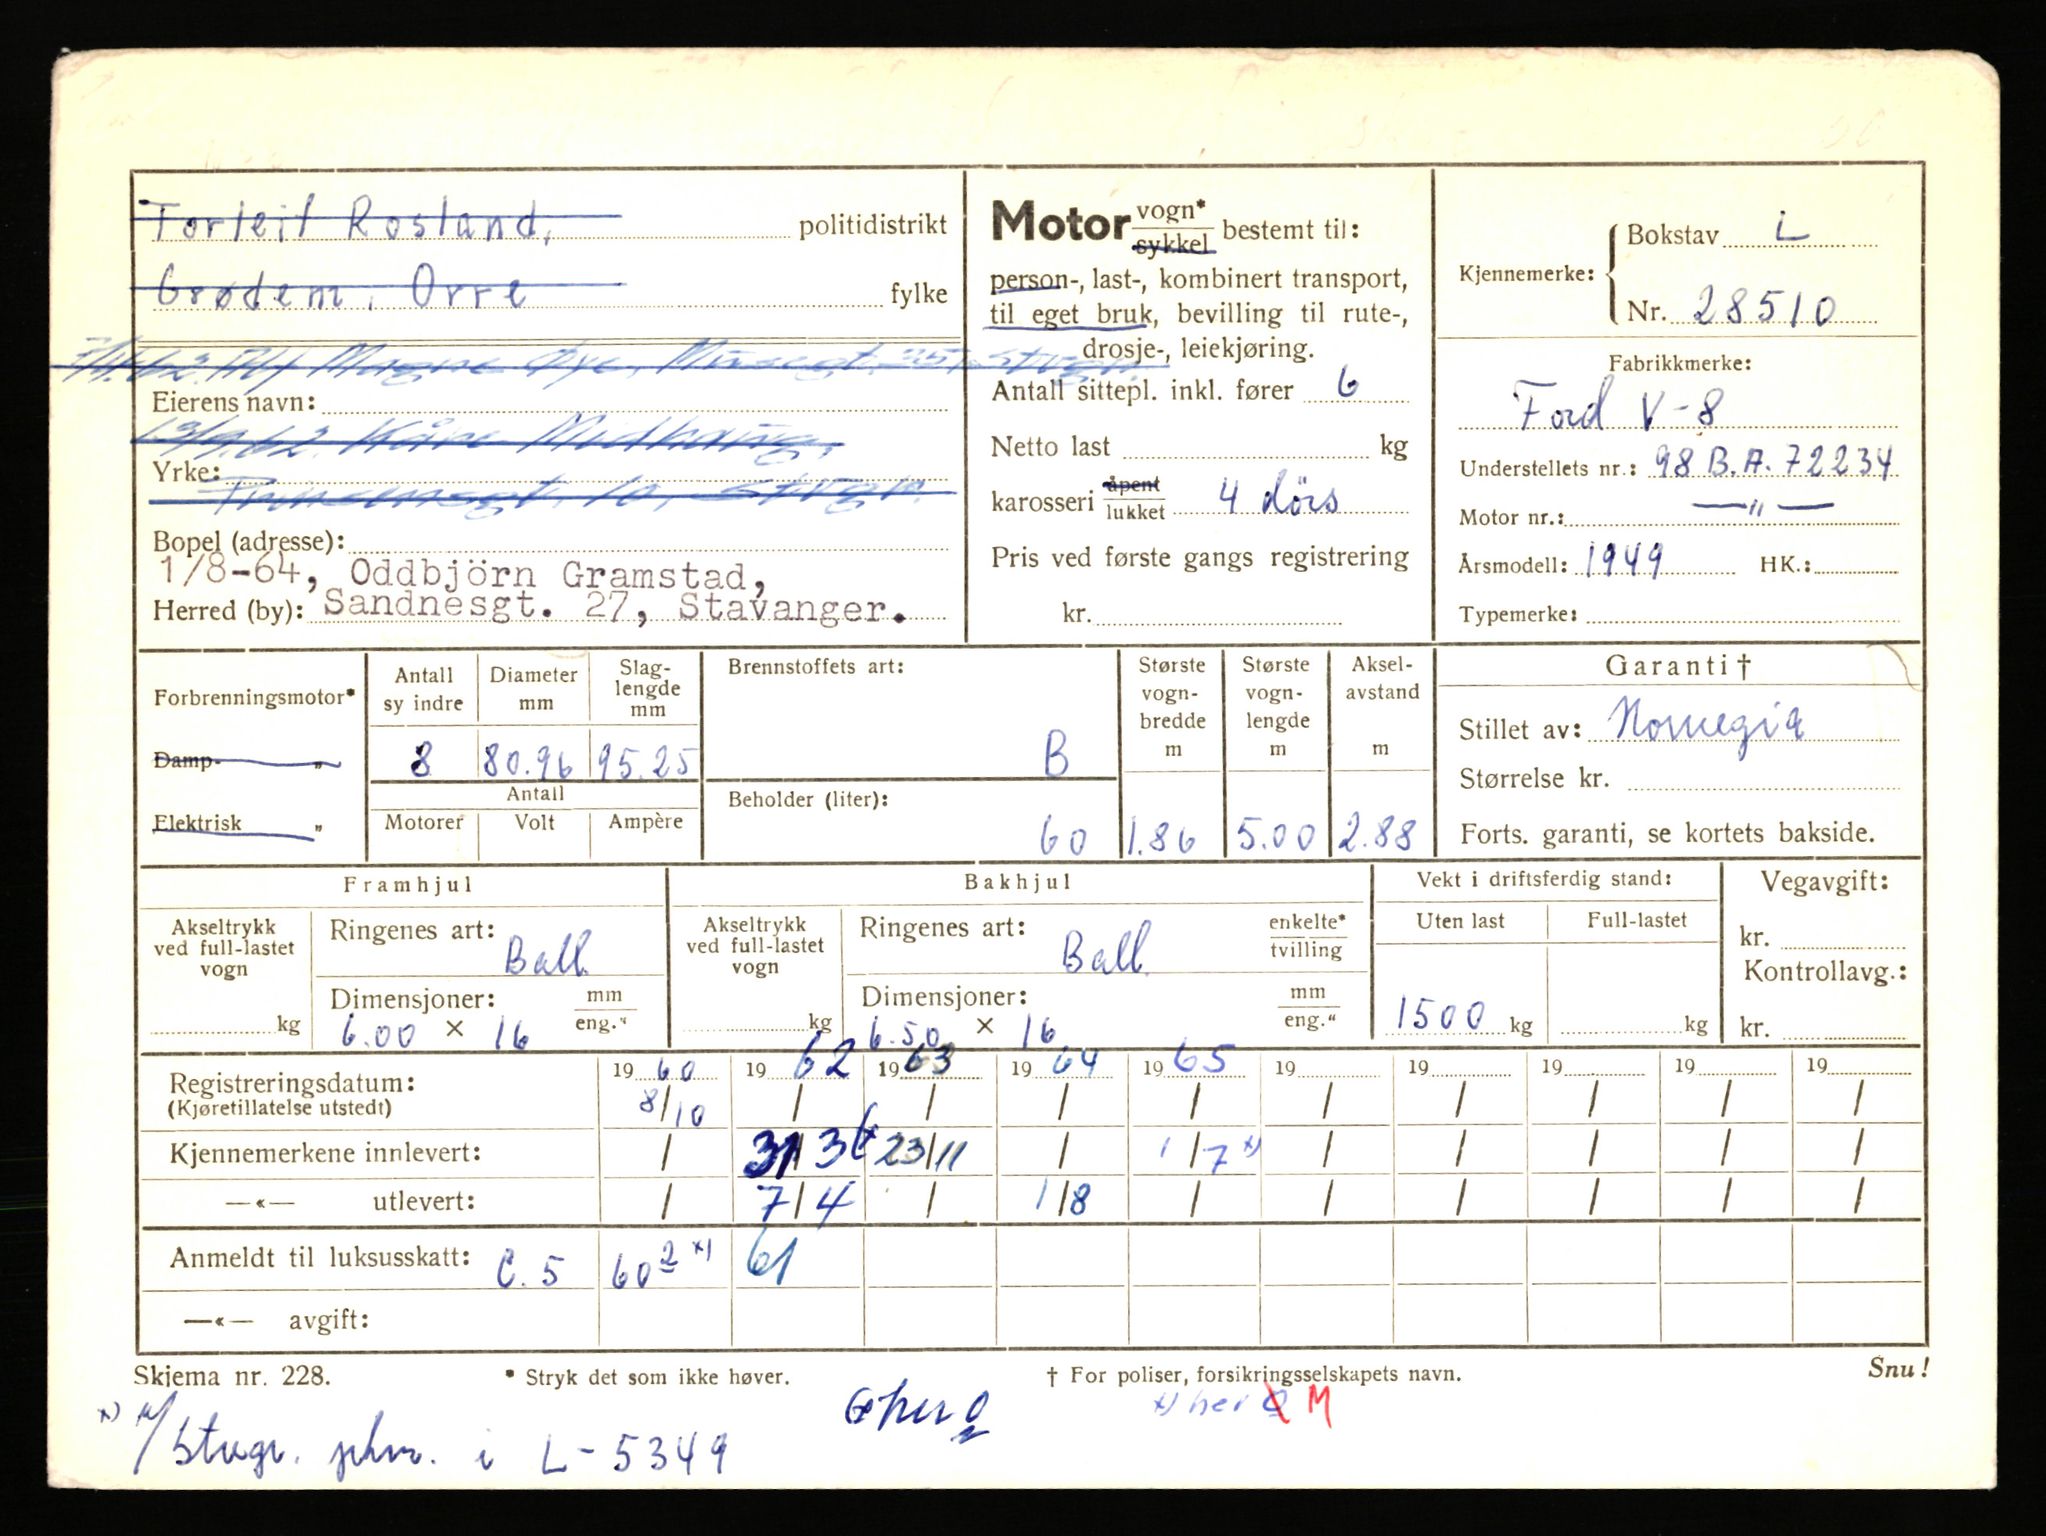 Torleif Rosland, politidistrikt
Grødem, Orre fylke
7/4.62. Alf Magne Øye, Musegt. 25, Stvgr.
Eierens navn:
13/9.62. Kåre Midhaug,
Yrke:
Prinsensgt. 10, Stvgr.
Bopel (adresse):
1/8-64, Oddbjörn Gramstad,
Herred (by): Sandnesgt. 27, Stavanger.
Motor vogn* sykkel bestemt til:
person-, last-, kombinert transport,
til eget bruk, bevilling til rute-,
drosje-, leiekjøring.
Antall sittepl. inkl. fører 6
Netto last kg
karosseri åpent lukket 4 dörs
Pris ved første gangs registrering
kr.
Kjennemerke: Bokstav L
Nr. 28510
Fabrikkmerke:
Ford V-8
Understellets nr.: 98 B.A. 72234
Motor nr.: — " —
Årsmodell: 1949 HK.:
Typemerke:
Forbrenningsmotor*
Damp- "
Elektrisk "
Antall sy indre Diameter mm Slag-lengde mm
8 80.96 95.25
Antall
Motorer Volt Ampère
Brennstoffets art:
B
Beholder (liter):
60
Største vogn-bredde m
1.86
Største vogn-lengde m
5.00
Aksel-avstand m
2.88
Garanti †
Stillet av: Norvegia
Størrelse kr.
Forts. garanti, se kortets bakside.
Framhjul
Akseltrykk ved full-lastet vogn
kg
Ringenes art: Ball.
Dimensjoner: mm eng."
6.00 × 16
Bakhjul
Akseltrykk ved full-lastet vogn
kg
Ringenes art: Ball. enkelte* tvilling
Dimensjoner: mm eng."
6.50 × 16
Vekt i driftsferdig stand:
Uten last Full-lastet
1500 kg kg
Vegavgift:
kr.
Kontrollavg.:
kr.
Registreringsdatum: 19 60 19 62 19 63 19 64 19 65 19 19 19 19 19
(Kjøretillatelse utstedt) 8/10 / / / / / / / / /
Kjennemerkene innlevert: / 31/3 23/11 / 1/7 x) / / / / /
—«— utlevert: / 7/4 / 1/8 / / / / / /
Anmeldt til luksusskatt: C. 5 60 2 x) 61
—«— avgift:
Skjema nr. 228. * Stryk det som ikke høver. † For poliser, forsikringsselskapets navn. Snu!
x) her M
Stvgr. i L-5349